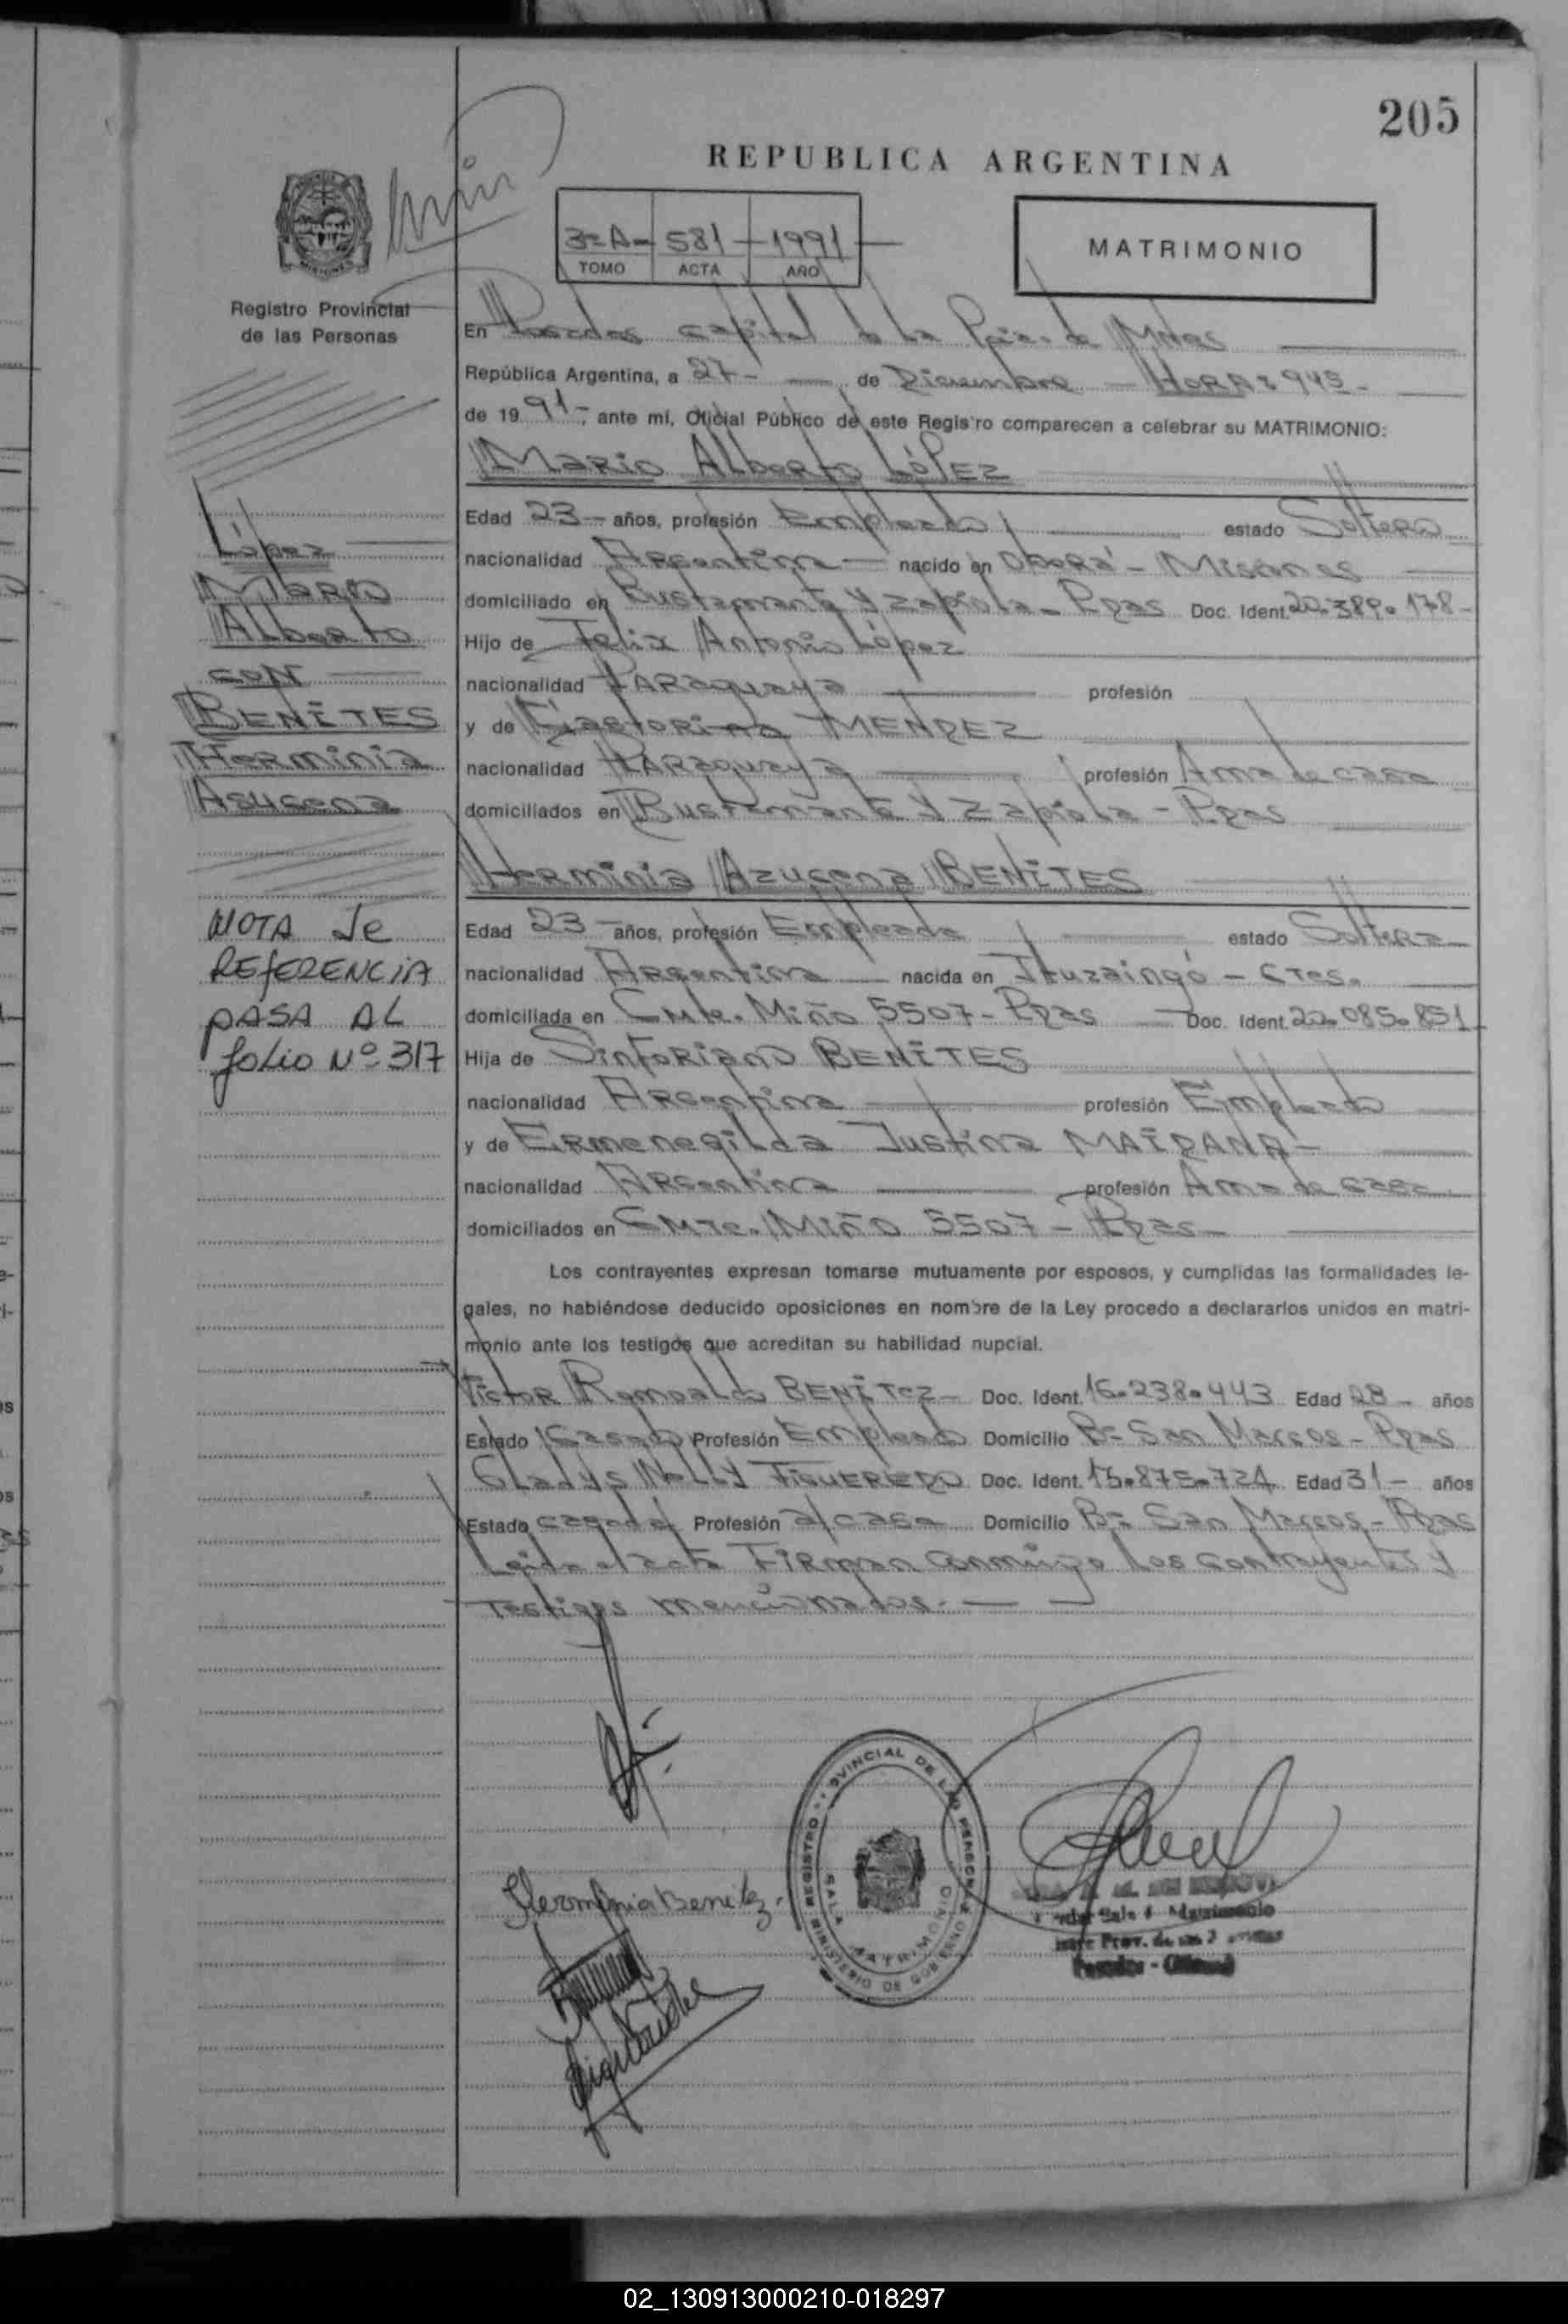 205
REPUBLICA ARGENTINA
3º A - 581 - 1991
TOMO ACTA AÑO
MATRIMONIO
MISIONES
Registro Provincial
de las Personas
En Posadas capital de la Pcia. de Mnes
República Argentina, a 27 - de Diciembre - HORA: 945 -
de 19 91 -, ante mí, Oficial Público de este Registro comparecen a celebrar su MATRIMONIO:
Mario Alberto LÓPEZ
Edad 23 - años, profesión Empleado estado Soltero
nacionalidad Argentina - nacido en Oberá - Misiones
domiciliado en Bustamante y Zapiola - Pdas Doc. Ident. 20.389.178 -
Hijo de Felix Antonio López
nacionalidad Paraguaya profesión
y de MENDEZ
nacionalidad Paraguaya profesión Ama de casa
domiciliados en Bustamante y Zapiola - Pdas
Herminia Azucena BENÍTES
Edad 23 - años, profesión Empleada estado Soltera
nacionalidad Argentina - nacida en Ituzaingó - Ctes.
domiciliada en Cmte. Miño 5507 - Pdas Doc. Ident. 22.085.851
Hija de Sinforiano BENÍTES
nacionalidad Argentina profesión Empleado
y de Ermenegilda Justina MAIDANA -
nacionalidad Argentina profesión Ama de casa
domiciliados en Cmte. Miño 5507 - Pdas -
López
Mario
Alberto
CON
BENÍTES
Herminia
Asucena
NOTA de
REFERENCIA
PASA AL
folio Nº 317
Los contrayentes expresan tomarse mutuamente por esposos, y cumplidas las formalidades le-
gales, no habiéndose deducido oposiciones en nombre de la Ley procedo a declararlos unidos en matri-
monio ante los testigos que acreditan su habilidad nupcial.
Victor Romoaldo BENÍTEZ - Doc. Ident. 16.238.443 Edad 28 - años
Estado Casado Profesión Empleado Domicilio Bº San Marcos - Pdas
Gladys Nelly FIGUEREDO Doc. Ident. 13.875.724 Edad 31 - años
Estado casada Profesión a/casa Domicilio Bº San Marcos - Pdas
Leida el acta Firman conmigo los contrayentes y
Testigos mencionados. -
Herminia Benitez.
REGISTRO PROVINCIAL DE LAS PERSONAS
MINISTERIO DE GOBIERNO
SALA MATRIMONIO
Sala Matrimonio
Prov. de las
Posadas -
02_130913000210-018297